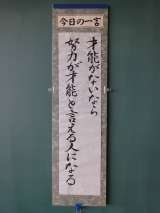 今日の一言
才能がないなら
努力が才能と言える人になる